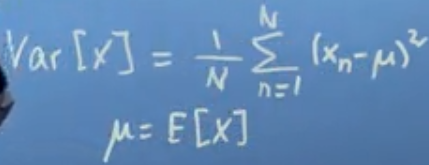 Var[X] = 1/N N∑n=1 (xn-μ)²
μ = E[X]